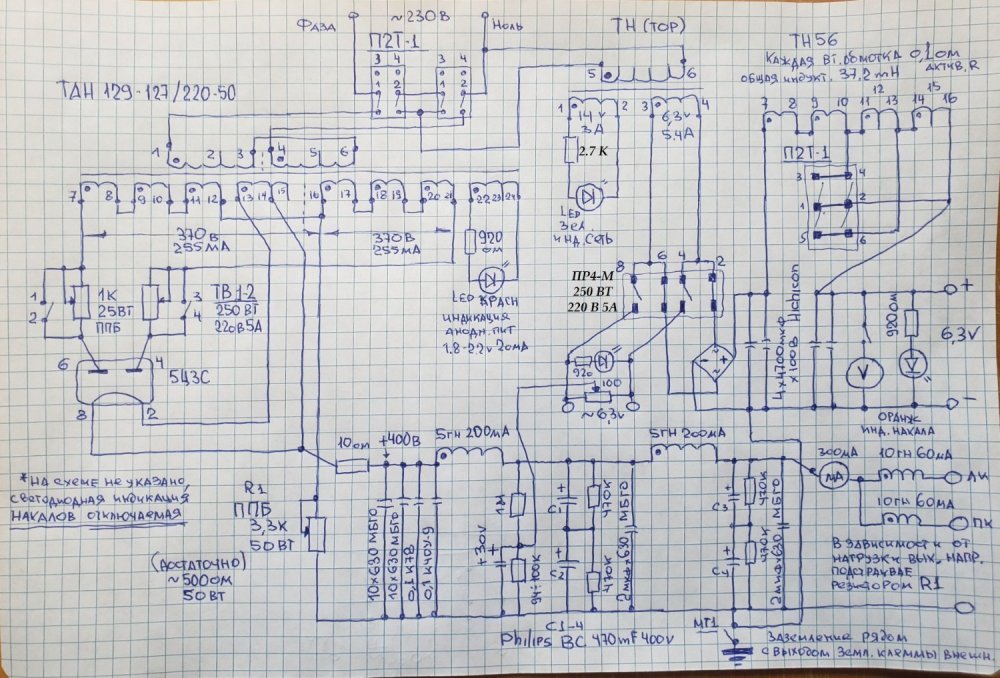 Фаза
~230В
Ноль
П2Т-1
3 4 3 4
1 2 1 2
ТН (ТОР)
5 6
ТН56
Каждая вт. обмотка 0,1 ом
актив. R
общая индукт. 37,2 mH
12 15
7 8 9 10 11 13 14 16
ТАН 129-127/220-50
1 2 3 4 5 6
1 2 3 4
14 V
3А
6,3V
5.4А
2.7 К
LED
Зел.
инд. сеть
П2Т-1
3 4
1 2
5 6
7 8 9 10 11 12 13 14 15 16 17 18 19 20 21 22 23 24
370В
255мА
370В
255мА
920
ом
LED КРАСН
индикация
анодн. пит
1.8-2.2v 20мА
1
2
1К
25Вт
ППБ
3
4
ТВ 1-2
250 ВТ
220В 5А
6 4
5Ц3С
8 2
8 6 4 2
ПР4-М
250 ВТ
220 В 5А
920
100
~6,3v
4х4700мкф
х100В Hchicon
920 ом
+
6,3V
-
V
ОРАНЖ
инд. накала
*на схеме не указано,
светодиодная индикация
накалов отключаемая
10 ом
+400В
5ГН 200мА
5ГН 200мА
300мА
мА
10ГН 60мА
ЛК
10ГН 60мА
ПК
R1
ППБ
3,3К
50Вт
(Достаточно)
~500ом
50 ВТ
10х630 МБГО
10х630МБГО
0,1 К78
0,1 К40У-9
1М
+30V
94÷100К
C1
C2
470К
470К
2мкфх630 МБГО
C3
C4
470К
470К
2мкфх630 МБГО
В зависимости от
нагрузки вых. напр.
подстраивае
резистором R1
C1-4
Philips BC 470mF 400V
МТ1
Заземление рядом
с выходом земл. клеммы внешн.